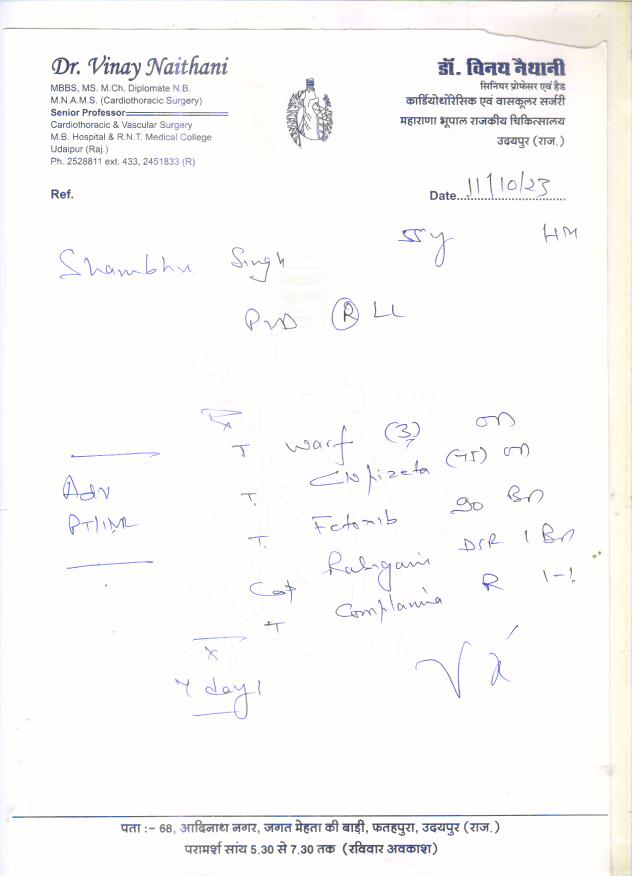 Dr. Vinay Naithani
MBBS, MS. M.Ch. Diplomate N.B.
M.N.A.M.S. (Cardiothoracic Surgery)
Senior Professor
Cardiothoracic & Vascular Surgery
M.B. Hospital & R.N.T. Medical College
Udaipur (Raj.)
Ph. 2528811 ext. 433, 2451833 (R)
डॉ. विनय नैथानी
सिनियर प्रोफेसर एवं हैड
कार्डियोथोरेसिक एवं वासकूलर सर्जरी
महाराणा भूपाल राजकीय चिकित्सालय
उदयपुर (राज.)
Ref.
Date 11/10/23
Shambhu Singh
PVD R LL
Rx
T warf (3) on
T. (75) on
Adv
PT/INR
T. 90 Bn
Cap DSR 1 Bn
T R 1-1
x
7 days
पता :– 68, आदिनाथ नगर, जगत मेहता की बाड़ी, फतहपुरा, उदयपुर (राज.)
परामर्श सांय 5.30 से 7.30 तक (रविवार अवकाश)